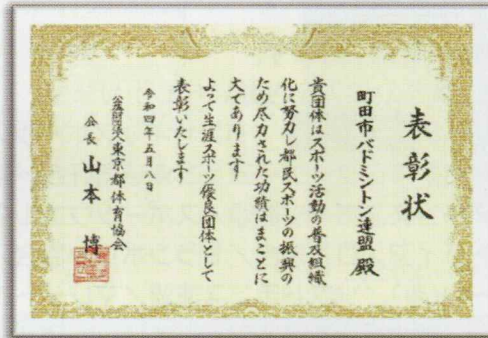 表彰状
町田市バドミントン連盟 殿
貴団体はスポーツ活動の普及組織
化に努力し都民スポーツの振興の
ため尽力された功績はまことに
大であります
よって生涯スポーツ優良団体として
表彰いたします
令和四年五月八日
公益財団法人東京都体育協会
会長 山本 博